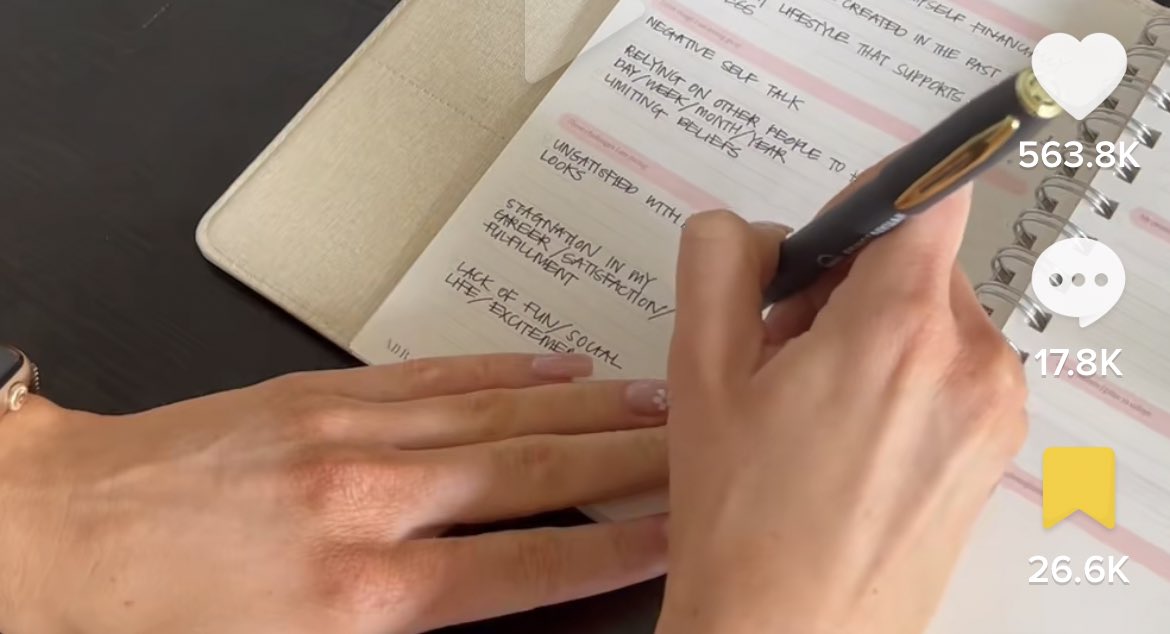 SELF FINANCI
CREATED IN THE PAST
LIFESTYLE THAT SUPPORTS
NEGATIVE SELF TALK
RELYING ON OTHER PEOPLE TO
DAY/WEEK/MONTH/YEAR
LIMITING BELIEFS
UNSATISFIED WITH
LOOKS
STAGNATION IN MY
CAREER/SATISFACTION/
FULFILLMENT
LACK OF FUN/SOCIAL
LIFE/EXCITEMEN
563.8K
17.8K
26.6K